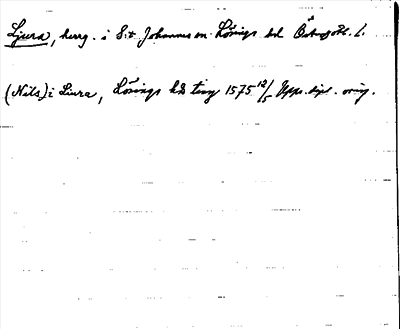 Ljura, herrg. i S:t Johannes sn. Lösings hd Östergötl. l.
(Nils) i Liura, Lösings hds ting 1575 12/5 Upps. dipl. orig.